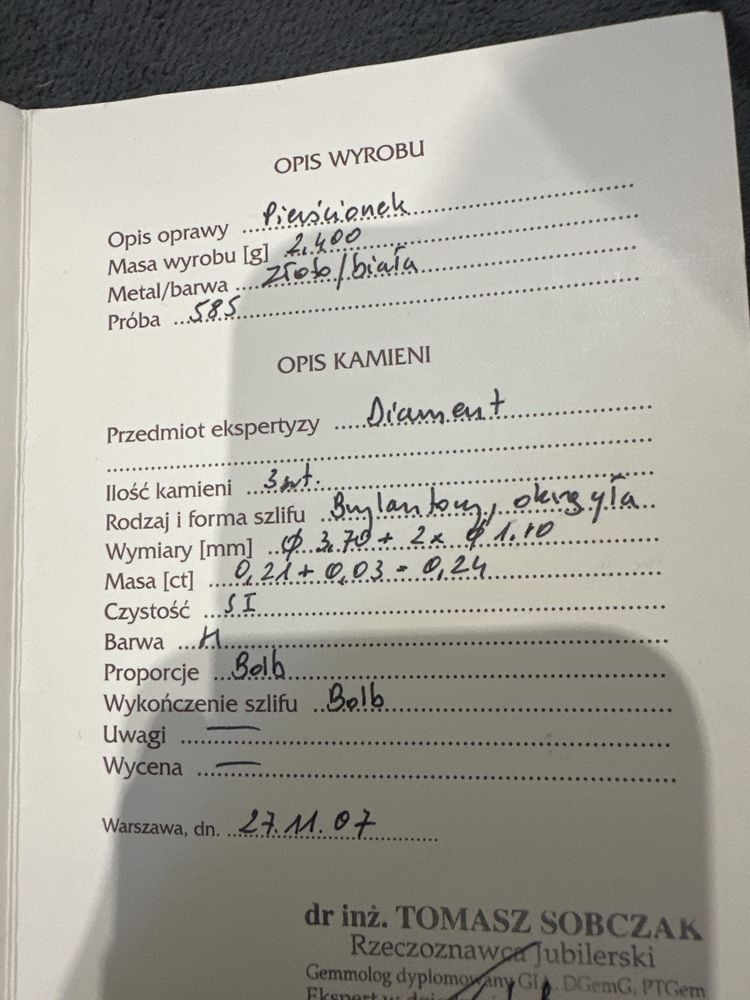 OPIS WYROBU
Opis oprawy Pierścionek
Masa wyrobu [g] 2.400
Metal/barwa złoto/biała
Próba 585
OPIS KAMIENI
Przedmiot ekspertyzy Diament
Ilość kamieni 3 szt.
Rodzaj i forma szlifu Brylantowy, okrągła
Wymiary [mm] φ 3.70 + 2x φ 1.10
Masa [ct] 0,21 + 0,03 = 0,24
Czystość SI
Barwa H
Proporcje Bdb
Wykończenie szlifu Bdb
Uwagi —
Wycena —
Warszawa, dn. 27.11.07
dr inż. TOMASZ SOBCZAK
Rzeczoznawca Jubilerski
Gemmolog dyplomowany GIA, DGemG, PTGem
Ekspert w